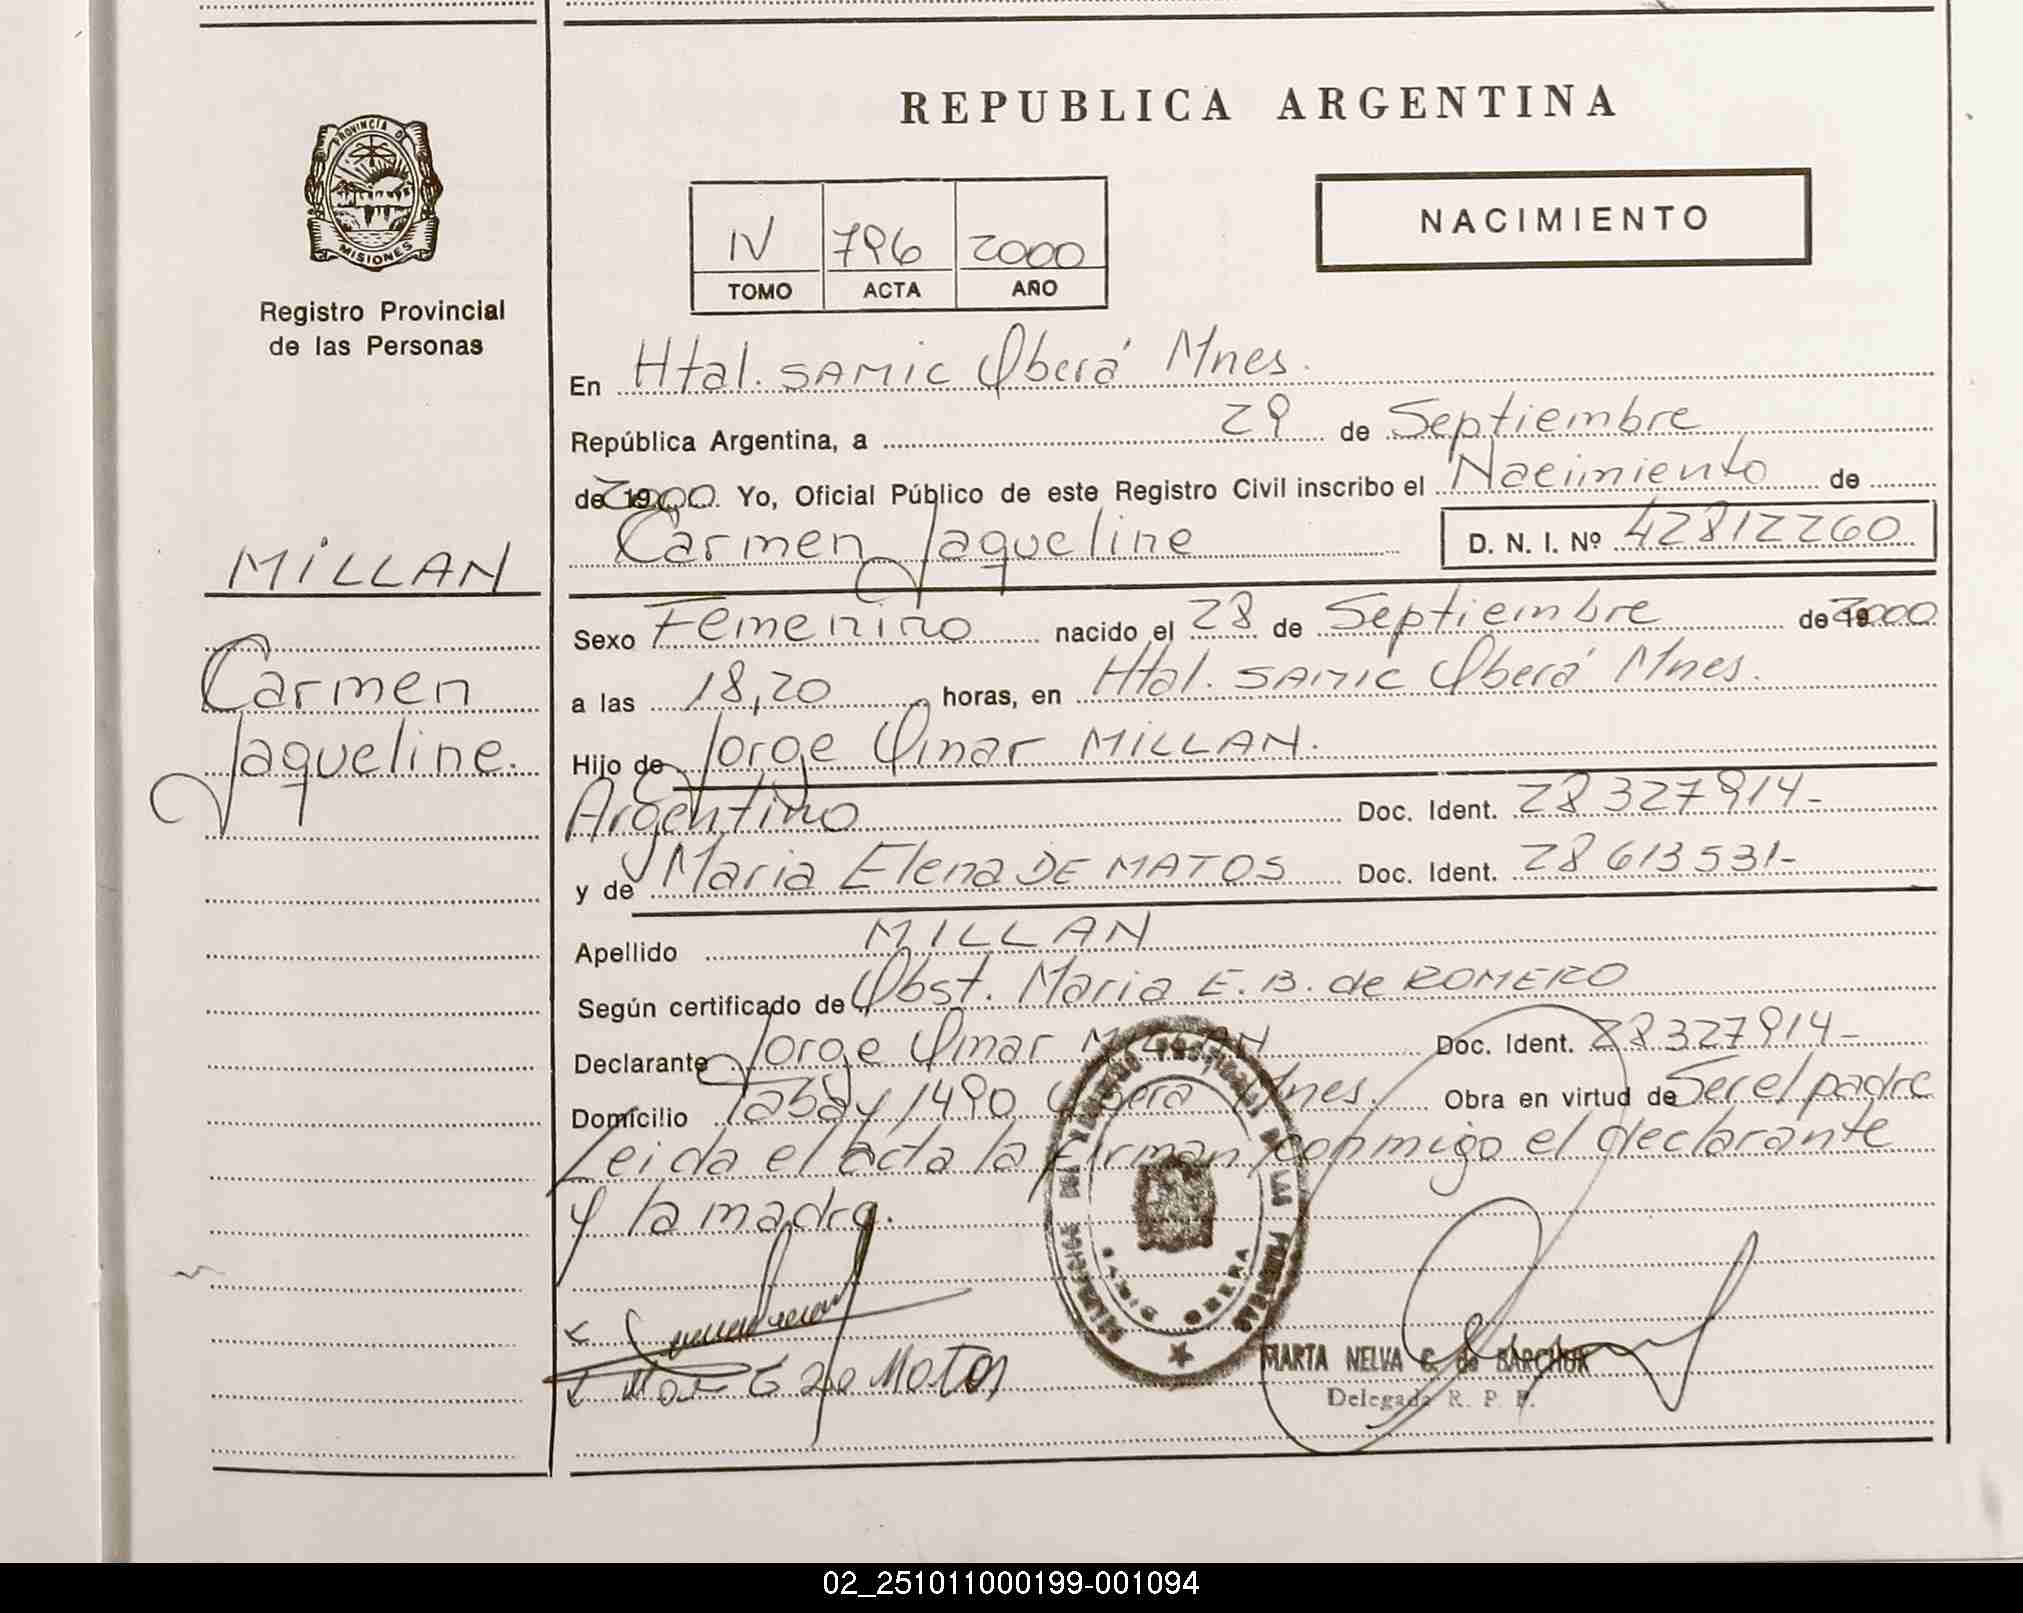 REPUBLICA ARGENTINA
PROVINCIA D
MISIONES
Registro Provincial
de las Personas
NACIMIENTO
IV 796 2000
TOMO ACTA AÑO
En Htal. SAMIC Oberá Mnes.
República Argentina, a 29 de Septiembre
de 2000. Yo, Oficial Público de este Registro Civil inscribo el Nacimiento de
Carmen Jaqueline D. N. I. Nº 42812260
MILLAN
Carmen
Jaqueline.
Sexo Femenino nacido el 28 de Septiembre de 2000
a las 18,20 horas, en Htal. SAMIC Oberá Mnes.
Hijo de Jorge Omar MILLAN.
Argentino Doc. Ident. 28327914-
y de Maria Elena DE MATOS Doc. Ident. 28613531-
Apellido MILLAN
Según certificado de Obst. Maria E. B. de ROMERO
Declarante Jorge Omar MILLAN Doc. Ident. 28327914-
Domicilio Tabay 1490 Oberá Mnes. Obra en virtud de Ser el padre
Leida el acta la firman conmigo el declarante
y la madre.
OBERA
MARTA NELVA C. de BARCHUK
Delegada R. P. P.
02_251011000199-001094